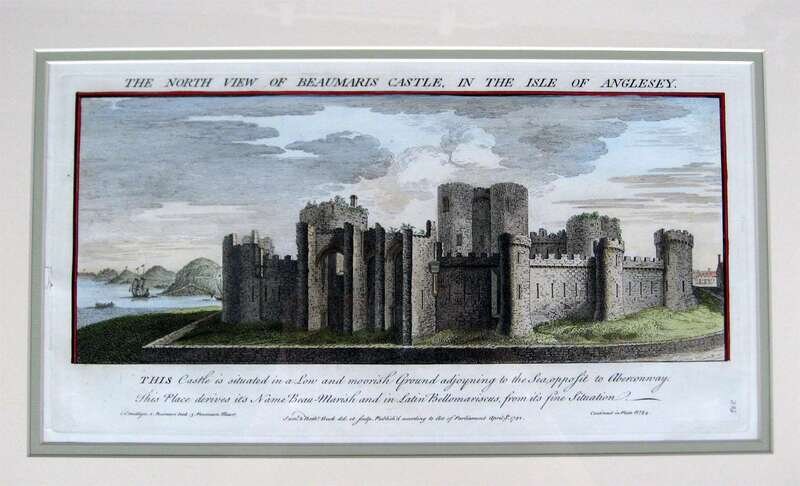 THE NORTH VIEW OF BEAUMARIS CASTLE, IN THE ISLE OF ANGLESEY.
THIS Castle is situated in a Low and moorish Ground adjoyning to the Sea, opposit to Aberconway.
This Place derives its Name Beau-Marsh and in Latin Bellomariscus, from its fine Situation.
Saml. & Nathl. Buck del. et sculp. Publish'd according to Act of Parliament April 1742.